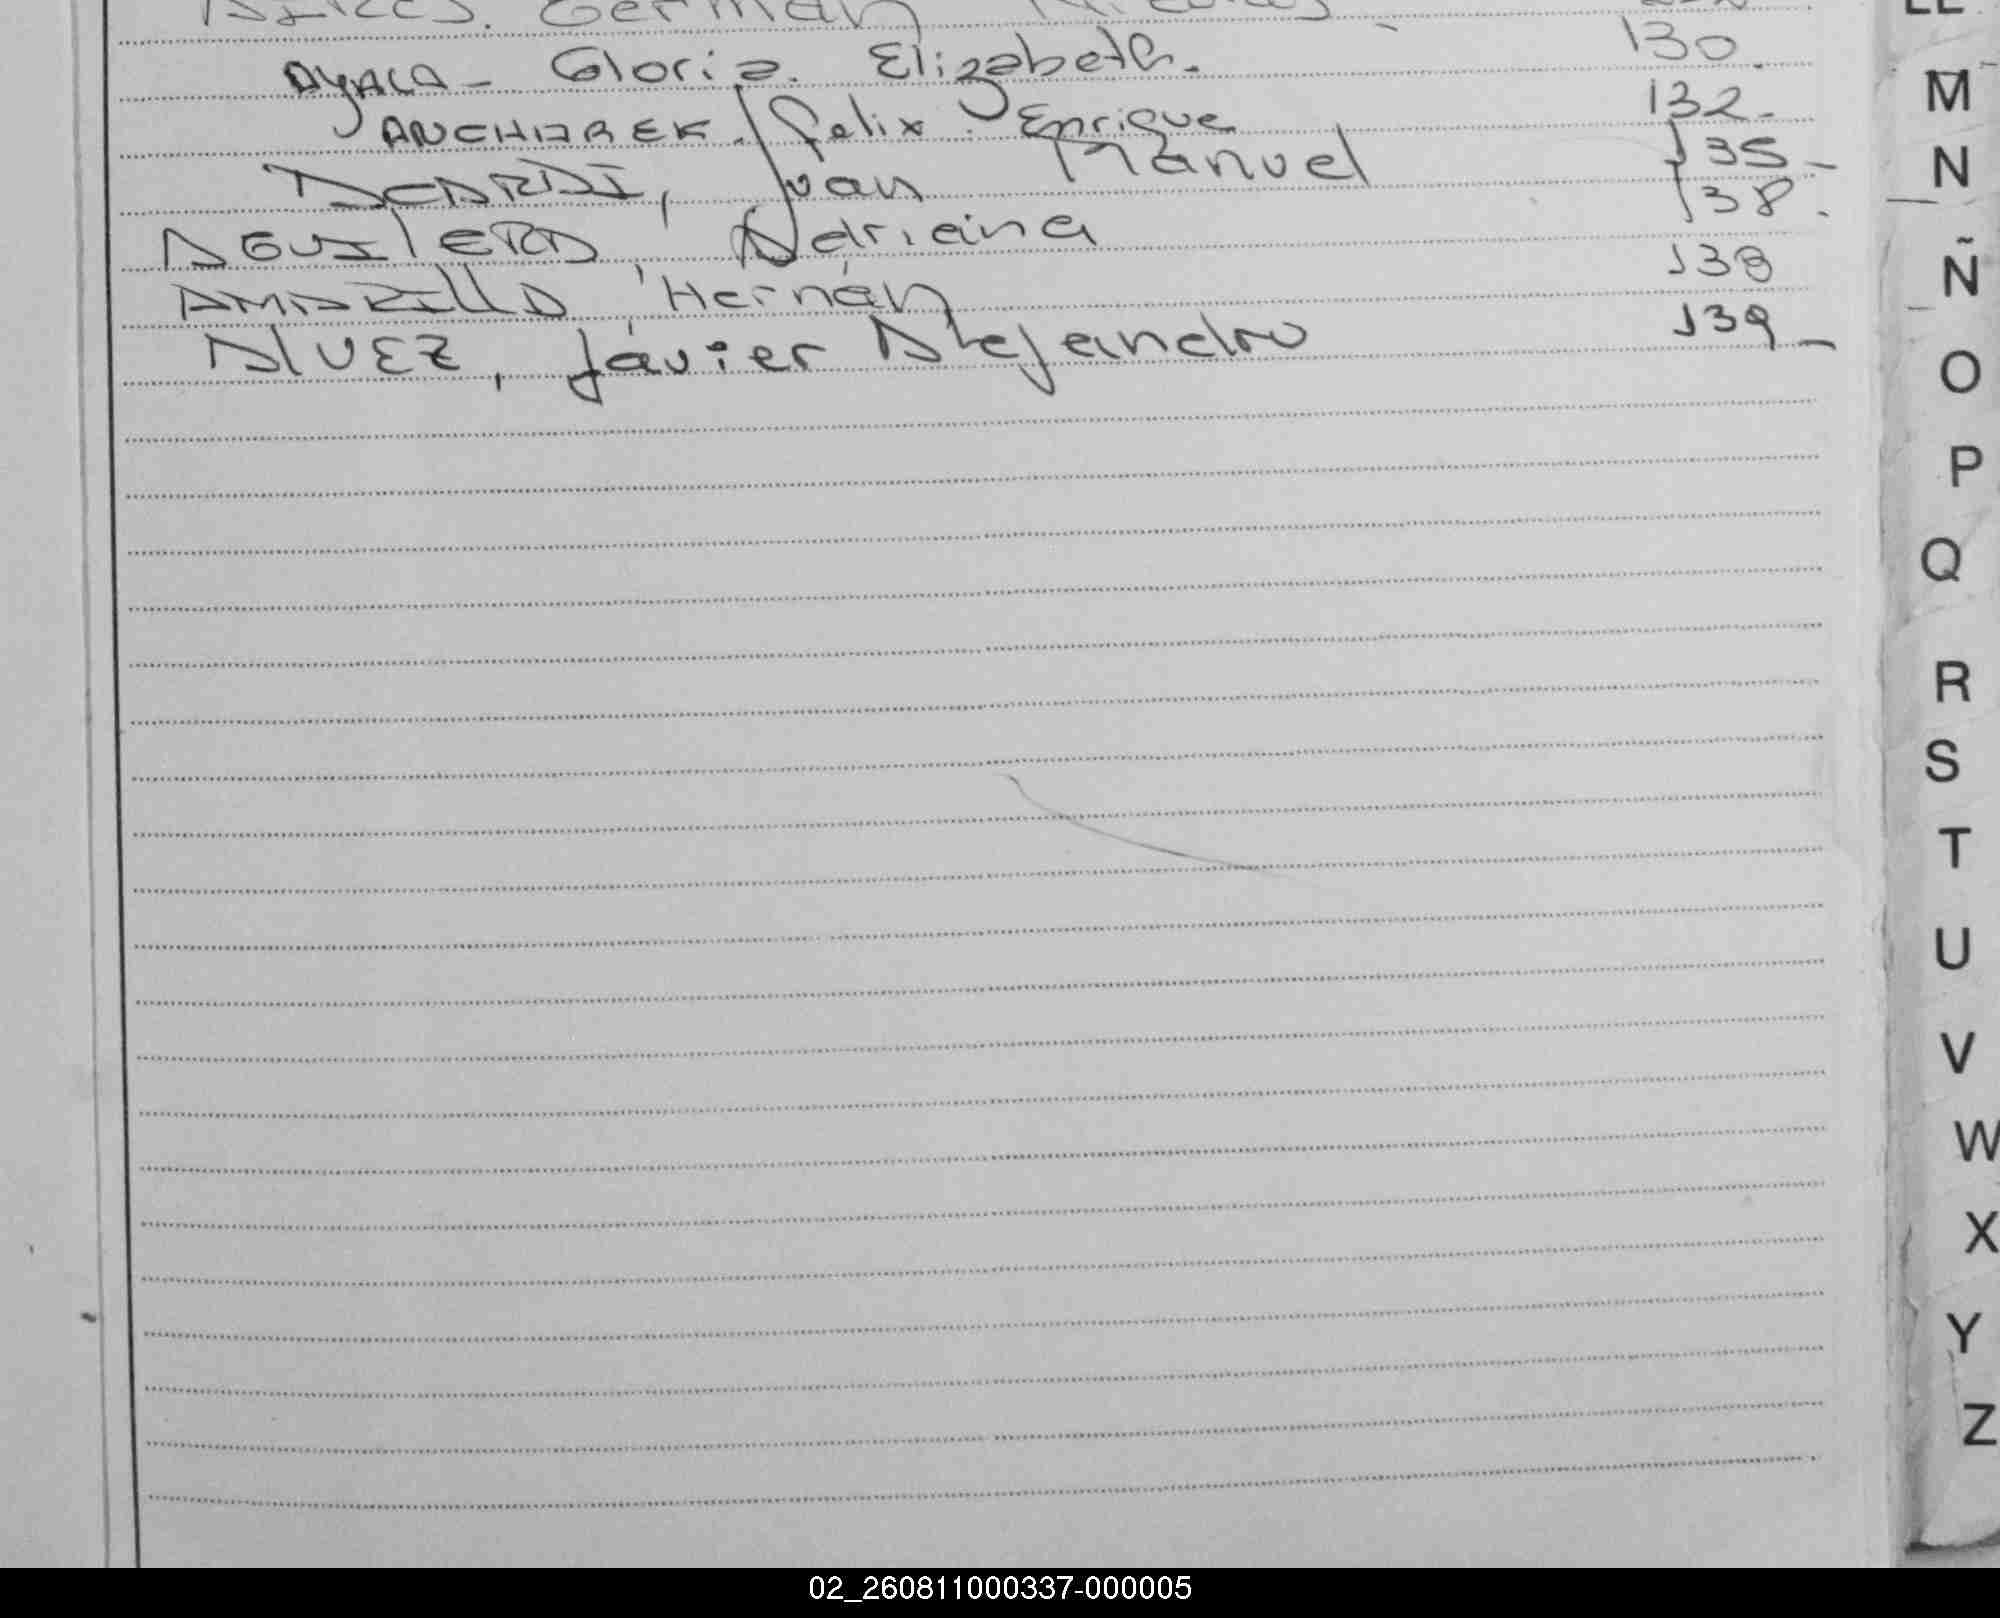 German
AYALA - Gloria. Elizabeth. 130.
ANCHAREK. Felix. Enrique 132.-
ACARDI, Juan Manuel 135-
AGUILERA, Adriana 138.
AMARILLA, Hernán 138
AlVEZ, Javier Alejandro 139-
M
N
Ñ
O
P
Q
R
S
T
U
V
W
X
Y
Z
02_260811000337-000005